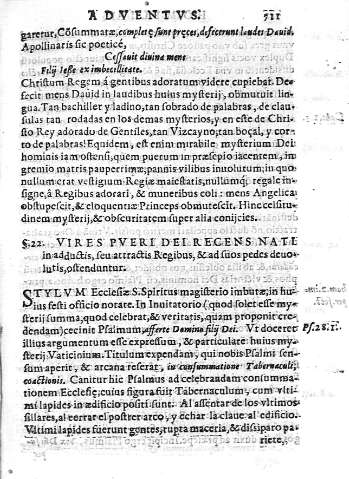 ADVENTVS. 511
garetur, Cõsummatæ, completę sunt preces, defecerunt laudes Dauid.
Apollinaris sic poeticé,
Cessauit diuina mens
Filij Iesse ex imbecillitate.
Christum Regem á gentibus adoratum videre cupiebat. De-
fecit mens Dauid in laudibus huius mysterij, obmutuit lin-
gua. Tan bachiller y ladino, tan sobrado de palabras, de clau-
sulas tan rodadas en los demas mysterios, y en este de Chris-
to Rey adorado de Gentiles, tan Vizcayno; tan boçal, y cor-
to de palabras! Equidem, est enim mirabile mysterium Dei
hominis iam ostensi, quem puerum in præsepio iacentem, in
gremio matris pauperrimæ; pannis vilibus inuolutum; in quo
nullum erat vestigium Regiæ maiestatis, nullumq; regale in-
signe, â Regibus adorari, & muneribus coli: mens Angelica
obstupescit, & eloquentiæ Princeps obmutescit. Hinc celsitu-
dinem mysterij, & obscuritatem super alia conijcies.
§.22. VIRES PVERI DEI RECENS NATI
in adductis, seu attractis Regibus, & ad suos pedes deuo-
lutis, ostenduntur.
STYLVM Ecclesiæ S. Spiritus magisterio imbutæ, in hu-
ius festi officio notate. In Inuitatorio (quod solet esse my-
sterij summa, quod celebrat, & veritatis, quam proponit cre-
dendam) cecinit Psalmum, afferte Domino filij Dei. Vt doceret Ps. 28. 1.
illius argumentum esse expressum, & particulare huius myst-
terij Vaticinium. Titulum expendam, qui nobis Psalmi sen-
sum aperit, & arcana reserat, in consummatione Tabernaculi,
coactionis. Canitur hic Psalmus ad celebrandam consumma-
tionem Ecclesię; cuius figura fuit Tabernaculum, cum vlti-
mi lapides in ædificio positi sunt. Al assentar de los vltimos
sillares, al cerrar el postrer arco, y echar la claue al edificio.
Vltimi lapides fuerunt gentes, rupta maceria, & dissiparo pa-
riete,